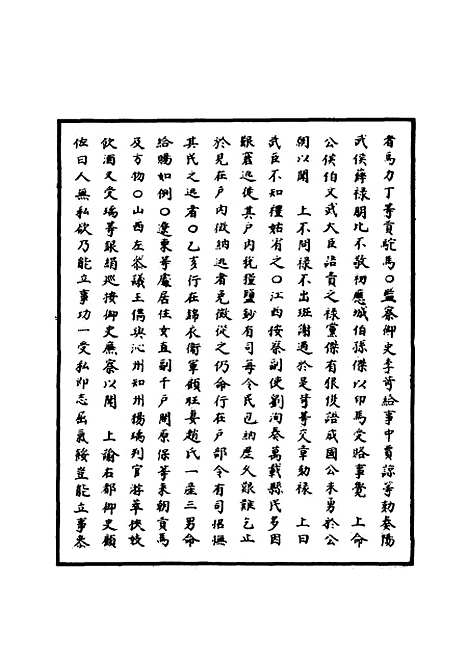 者馬力丁等貢駝馬○監察御史李笴給事中賈諒等劾奏陽
武侯薛祿朋比不敬初應城伯孫傑以印馬受賂事覺　上命
公侯伯文武大臣詰責之祿黨傑有狠傲語成國公朱勇於公
朝以聞　上不問祿不出班謝過於是笴等交章劾祿　上曰
武臣不知禮姑宥之○江西按察副使劉洵奏萬載縣民多因
艱窘逃徙其戶內稅糧鹽鈔有司每令民包納歷久艱難乞止
於見在戶內徵納逃者免徵從之仍命行在戶部令有司招撫
其民之逃者○乙亥行在錦衣衛軍顧旺妻趙氏一產三男命
給賜如例○遼東等處居住女直副千戶開原保等來朝貢馬
及方物○山西左參議王儁與沁州知州楊瑀判官游莘挾妓
飲酒又受瑀等銀絹巡按御史廉察以聞　上諭右都御史顧
佐曰人無私欲乃能立事功一受私即志屈氣餒豈能立事參